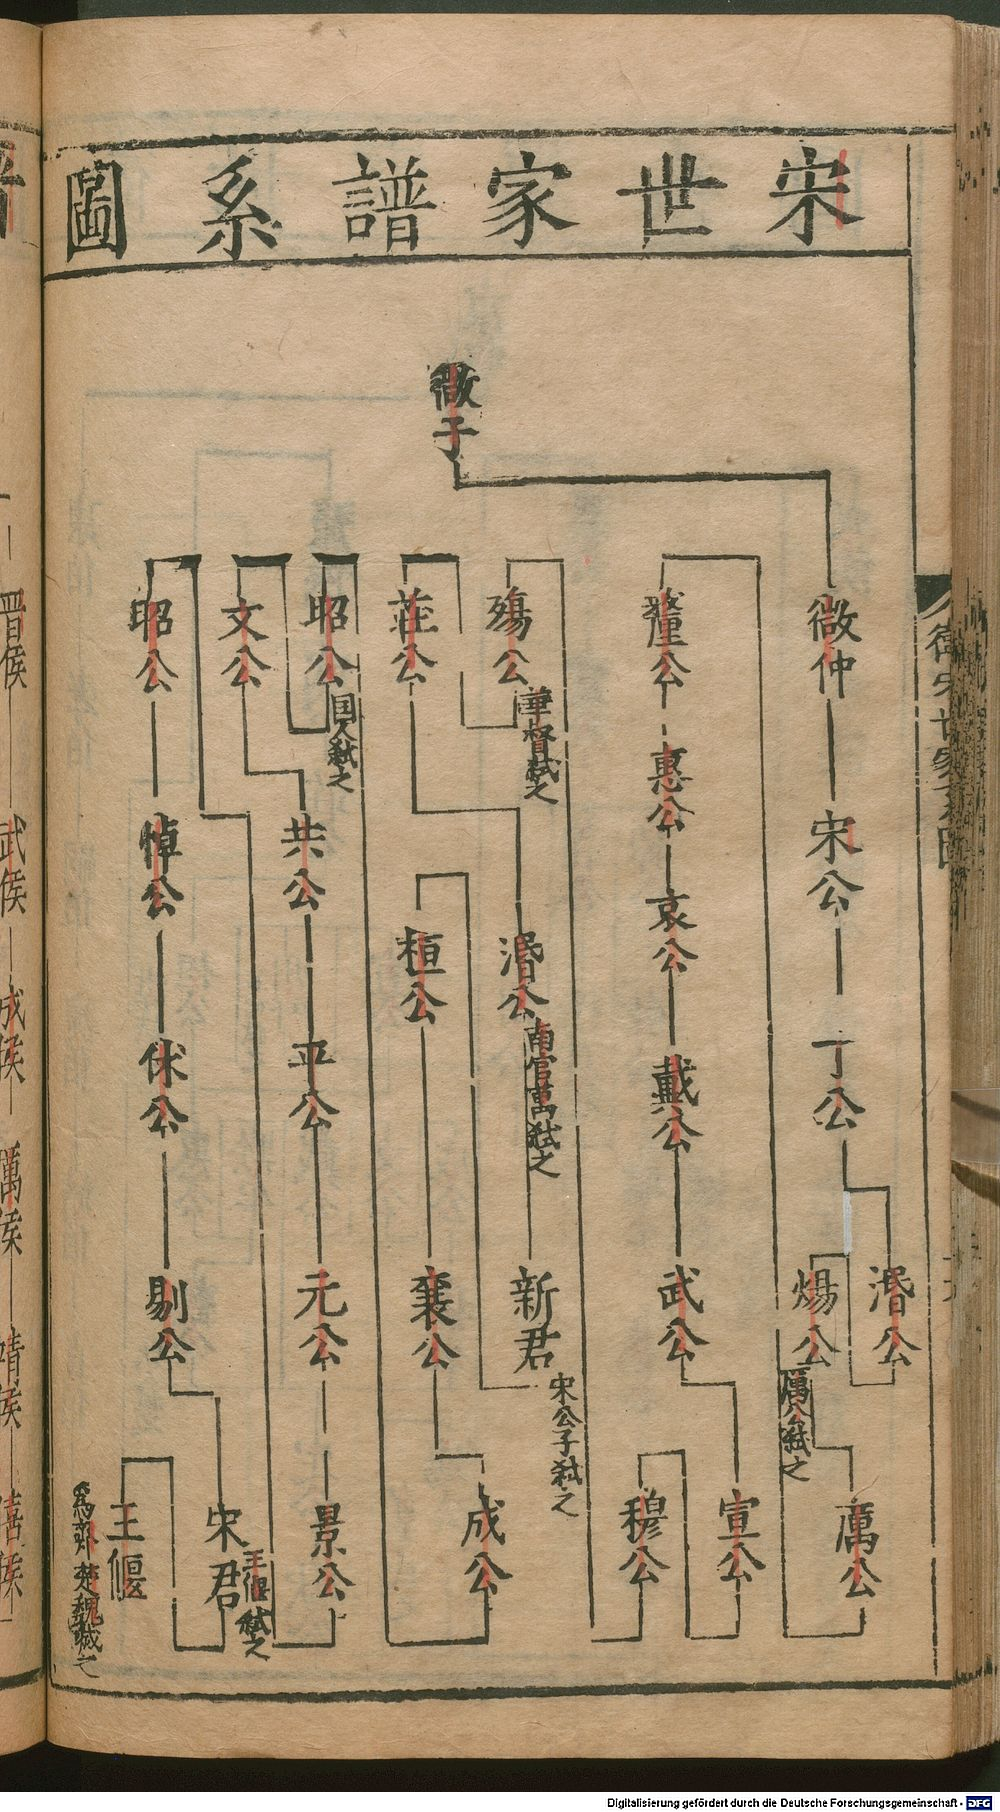 宋世家譜系圖
微子
微仲
宋公
丁公
湣公
煬公
厲公弑之
厲公
釐公
惠公
哀公
戴公
武公
宣公
穆公
殤公
華督弑之
莊公
湣公
南宮萬弑之
新君
宋公子弑之
桓公
襄公
成公
昭公
国人弑之
文公
共公
平公
元公
景公
昭公
悼公
休公
剔公
宋君
王偃弑之
王偃
為齊楚魏滅之
晋侯
武侯
成侯
厲侯
靖侯
僖侯
Digitalisierung gefördert durch die Deutsche Forschungsgemeinschaft - DFG